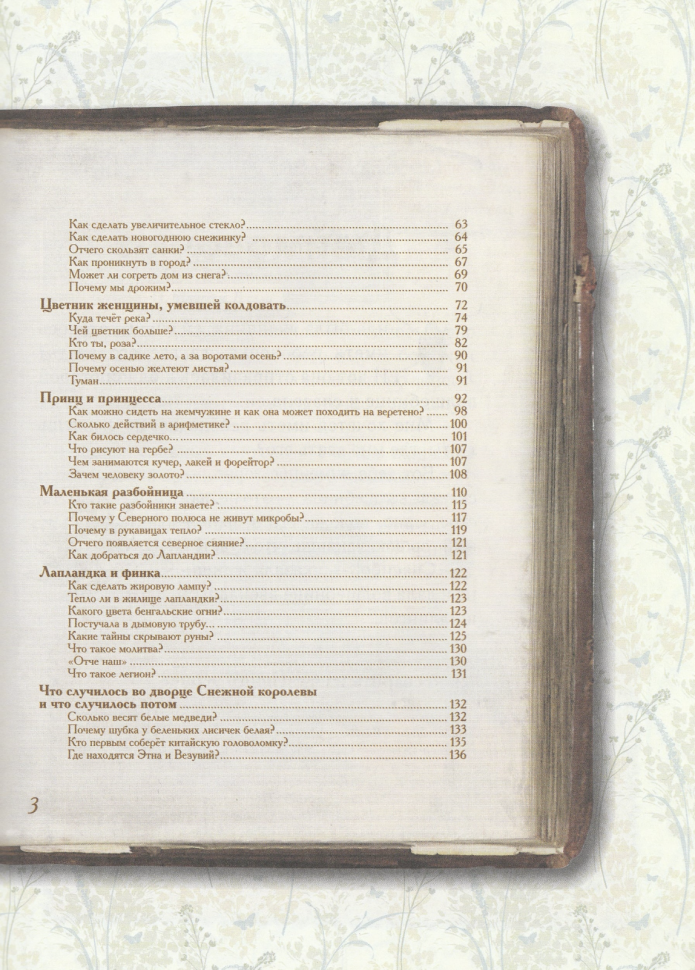 Как сделать увеличительное стекло?.......... 63
Как сделать новогоднюю снежинку? .......... 64
Отчего скользят санки? .......... 65
Как проникнуть в город? .......... 67
Может ли согреть дом из снега? .......... 69
Почему мы дрожим?.......... 70
Цветник женщины, умевшей колдовать.......... 72
Куда течёт река? .......... 74
Чей цветник больше?.......... 79
Кто ты, роза?.......... 82
Почему в садике лето, а за воротами осень?.......... 90
Почему осенью желтеют листья?.......... 91
Туман.......... 91
Принц и принцесса.......... 92
Как можно сидеть на жемчужине и как она может походить на веретено? ...... 98
Сколько действий в арифметике? .......... 100
Как билось сердечко... .......... 101
Что рисуют на гербе? .......... 107
Чем занимаются кучер, лакей и форейтор? .......... 107
Зачем человеку золото? .......... 108
Маленькая разбойница .......... 110
Кто такие разбойники знаете? .......... 115
Почему у Северного полюса не живут микробы?.......... 117
Почему в рукавицах тепло? .......... 119
Отчего появляется северное сияние?.......... 121
Как добраться до Лапландии? .......... 121
Лапландка и финка.......... 122
Как сделать жировую лампу? .......... 122
Тепло ли в жилище лапландки?.......... 123
Какого цвета бенгальские огни?.......... 123
Постучала в дымовую трубу... .......... 124
Какие тайны скрывают руны? .......... 125
Что такое молитва?.......... 130
«Отче наш» .......... 130
Что такое легион? .......... 131
Что случилось во дворце Снежной королевы
и что случилось потом .......... 132
Сколько весят белые медведи? .......... 132
Почему шубка у беленьких лисичек белая?.......... 133
Кто первым соберёт китайскую головоломку?.......... 135
Где находятся Этна и Везувий?.......... 136
3